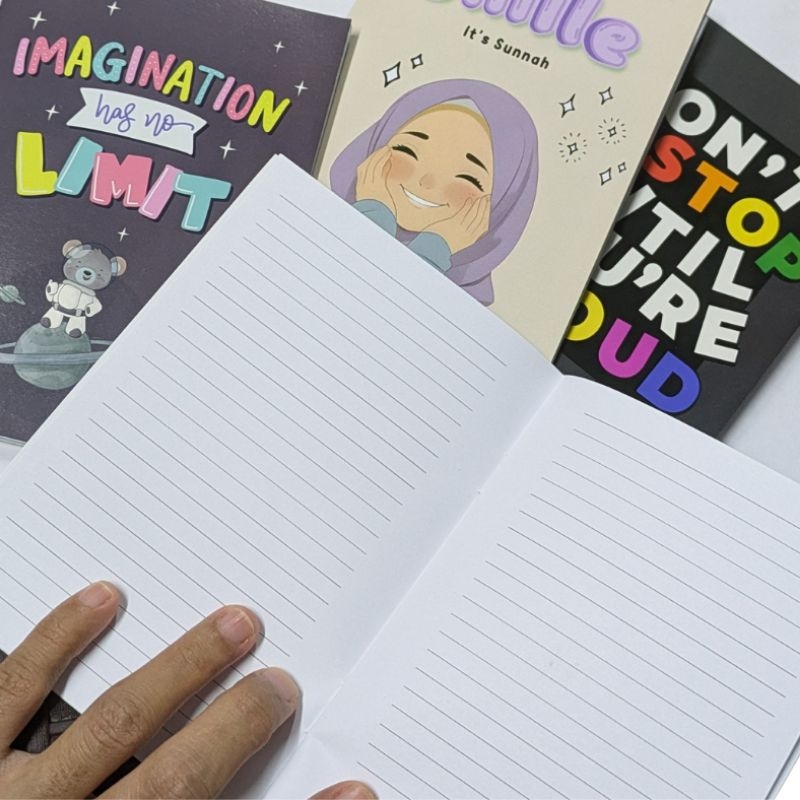 IMAGINATION
has no
LIMIT
Smile
It's Sunnah
ON'T
STOP
TIL
U'RE
OUD